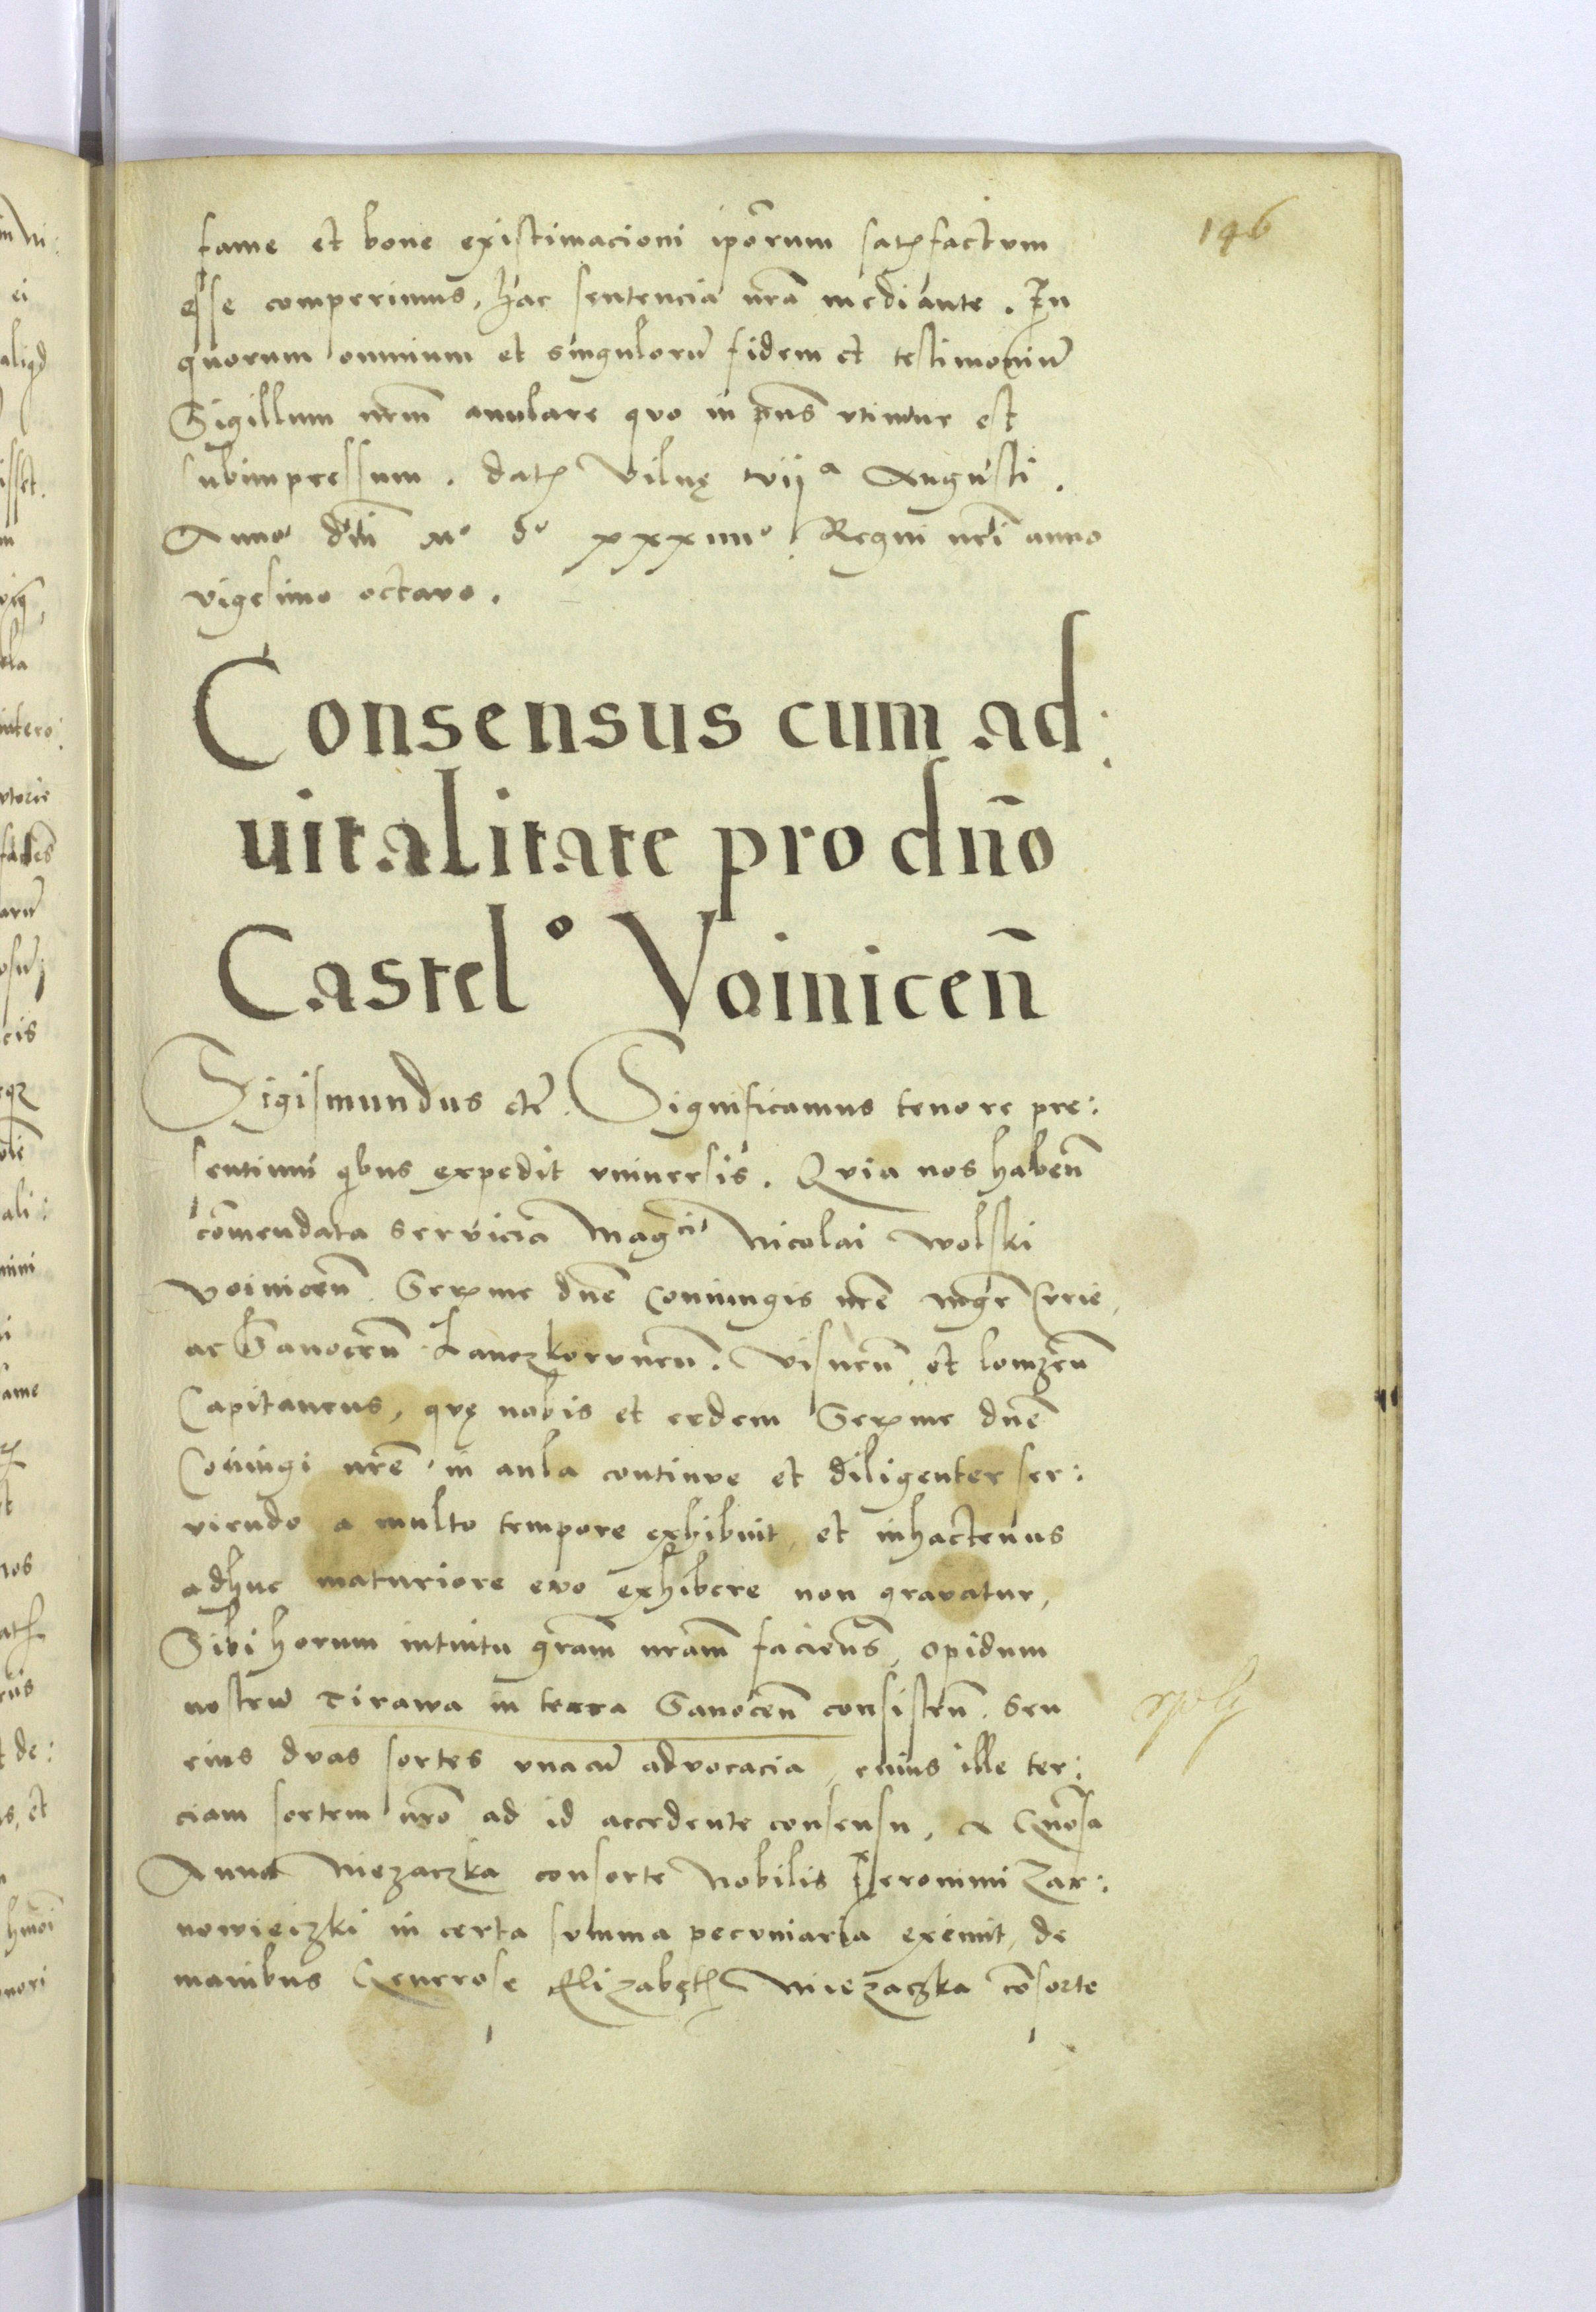 146
fame et bone existimacioni ipōrum satisfactum
esse comperimus, hac sentencia nrā mediante. In
quorum omnium et singulorū fidem et testimoniū
Sigillum nrm̄ anulare quo in pn̄s vtimur est
subimpressum. Dat. Vilnę Augusti.
Anno dn̄i Mº dº xxxiiiiº. Regni nrī anno
vigesimo octavo.
Consensus cum ad:
uitalitate pro dn̄o
Castelº Voinicen̄
Sigismundus etc̄. Significamus tenore pre:
sentium qbus expedit vniuersis. Quia nos haben̄
cōmendata servicia Magci Nicolai Wolski
Voinicen̄ Serme dn̄e Coniungis nrē mgrī Crie,
ac Sanocen̄ Lanczkorunen̄. Visnen̄ et lomzen̄
Capitaneus, quę nobis et eedem Serme dn̄e
Coniugi nrē in aula continue et diligenter ser:
viendo a multo tempore exhibuit, et inhactenus
adhuc maturiore evo exhibere non gravatur,
Sibi horum intuitu grām nrām faciens̄, opidum
nostrū Tirawa in terra Sanocen̄ consisten̄. seu
eius duas sortes vnacū advocacia, cuius ille ter:
ciam sortem nrō ad id accedente consensu, a Gn̄osa
Anna Niezaczka consorte Nobilis Jeronimi Zar:
nowieczki in certa summa pecuniaria exemit, de
manibus Generose Elizabeth Niezaczka cōsorte